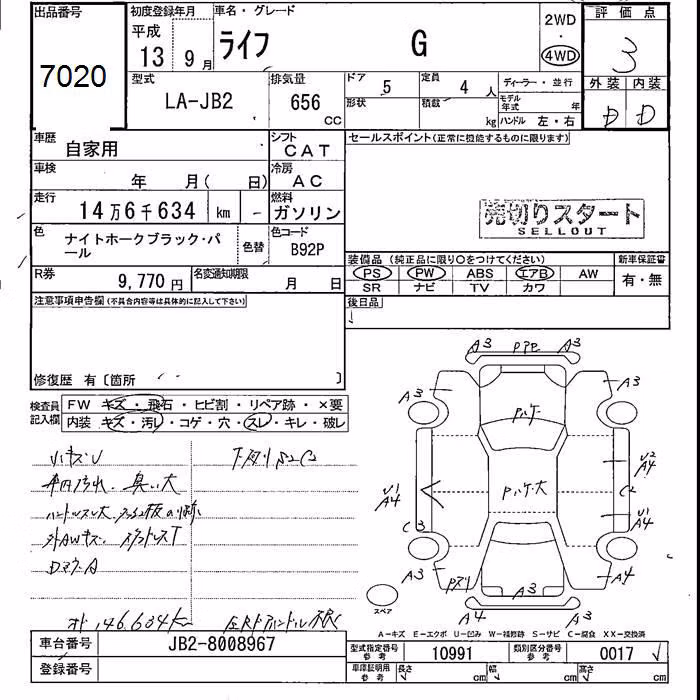 出品番号
7020
初度登録年月
平成
13年 9月
車名・グレード
ライフ G
2WD
・
4WD
評価点
3
外装 内装
D D
型式
LA-JB2
排気量
656
CC
ドア
5
形状
定員
4 人
積載
kg
ディーラー・並行
モデル年式 年
ハンドル 左・右
車歴
自家用
シフト
CAT
車検
年 月( 日)
冷房
AC
走行
14万6千634 km -
燃料
ガソリン
色
ナイトホークブラック・パール
色替
色コード
B92P
R券
9,770 円
名変通知期限
月 日
セールスポイント(正常に機能するものに限ります)
売切りスタート
SELLOUT
装備品 (純正品に限り〇をつけてください)
新車保証書
PS PW ABS エアB AW
有・無
SR ナビ TV カワ
後日品
注意事項申告欄(不具合内容等は具体的に記入して下さい)
修復歴 有〔箇所 〕
検査員記入欄
FW キズ・飛石・ヒビ割・リペア跡・×要
内装 キズ・汚レ・コゲ・穴・スレ・キレ・破レ
小キズU
下廻りS2C2
車内汚れ、臭い大
ハンドルスレ大
外AWキズ
DマウA
メーター 146,634km
A3 A3
A3 A3
Pハゲ
Pハゲ大
U1
A4
U2
A4
C2
U1
A4
C3
A3
A3
A4
A4
スペア
A-キズ E-エクボ U-凹み W-補修跡 S-サビ C-腐食 XX-交換済
車台番号
JB2-8008967
登録番号
型式指定番号
参考
10991
類別区分番号
参考
0017
車庫証明用
参考
長さ cm
幅 cm
高さ cm